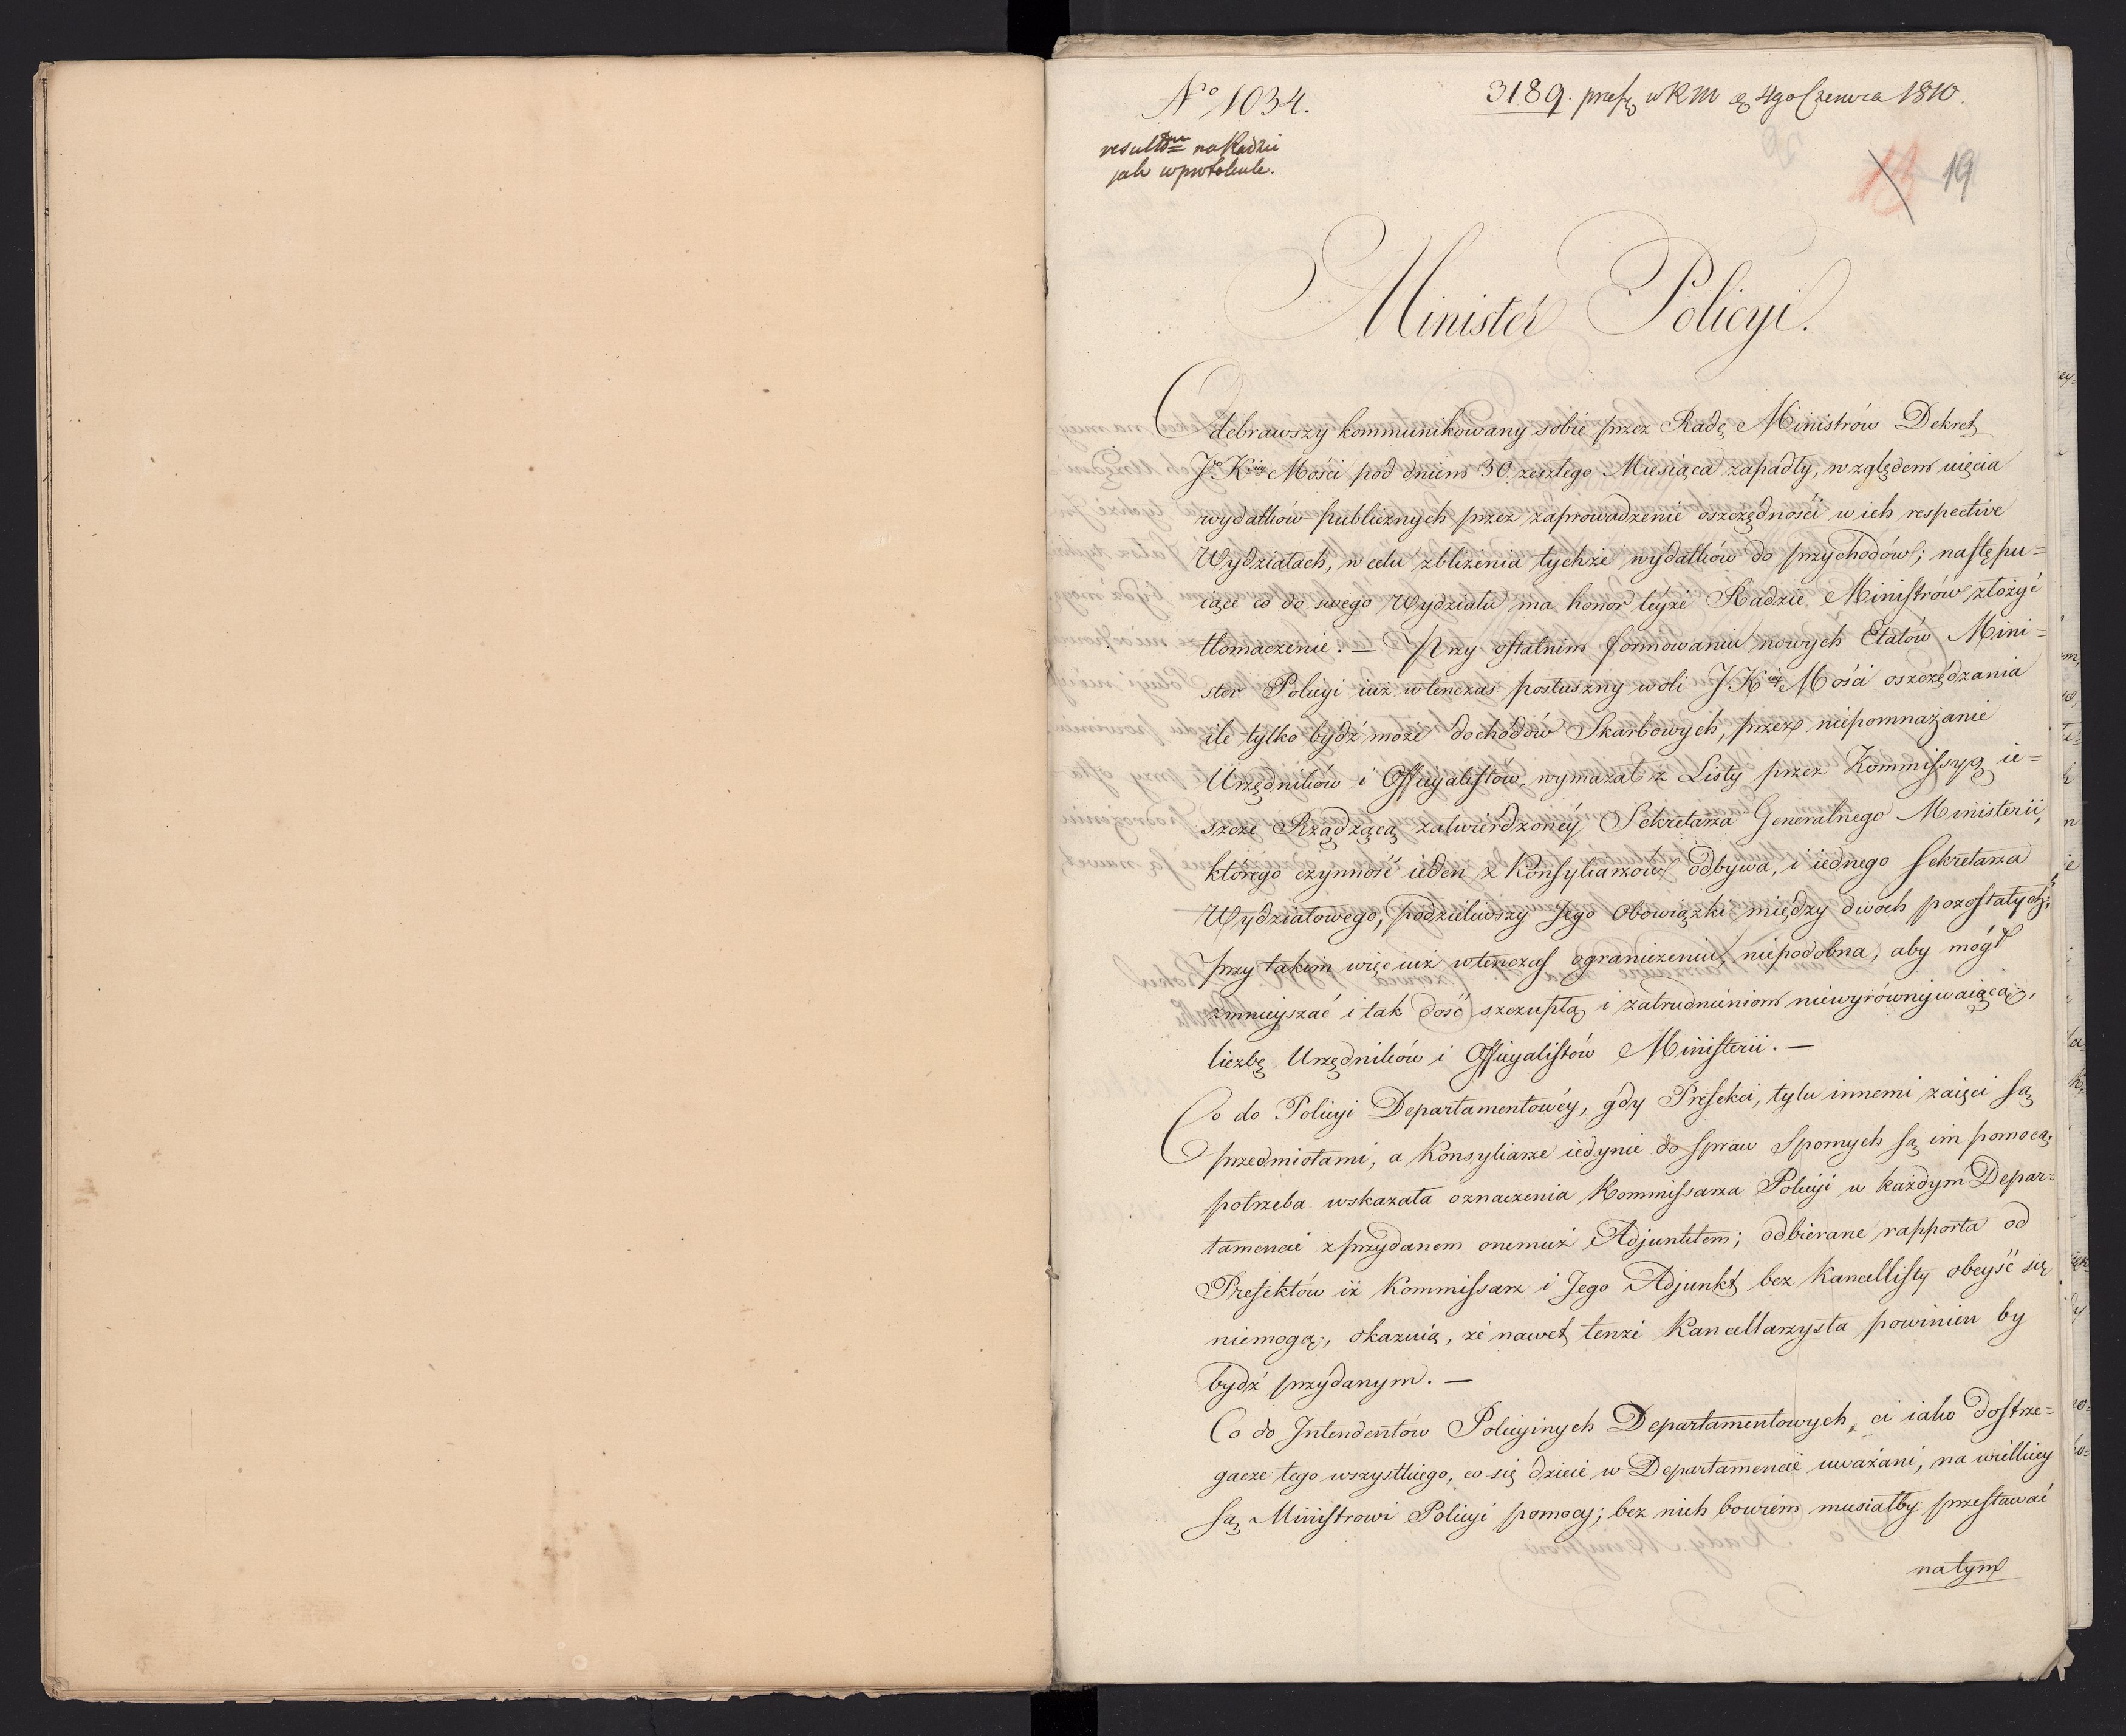 No 1034.
3189. w R M 4go Czerwca 1810.
na Radzie
jak w protokule.
19
Minister Policyi.
Odebrawszy kommunikowany sobie przez Radę Ministrów Dekret
Jo Kiey Mości pod dniem 30. zeszłego Miesiąca zapadły, względem uięcia
wydatków publicznych przez zaprowadzenie oszczędności w ich respective
Wydziałach, w celu zbliżenia tychże wydatków do przychodów; nastepu=
iące co do swego Wydziału ma honor teyże Radzie Ministrów złożyć
tłomaczenie. — Przy ostatnim formowaniu nowych Etatów Mini=
ster Policyi iuż wtenczas posłuszny woli J. Kiey Mości oszczędzania
ile tylko bydź może dochodów Skarbowych, przez niepomnażanie
Urzędników i Officyalistów, wymazał z Listy przez Kommissyą ie=
szcze Rządzącą zatwierdzoney Sekretarza Generalnego Ministerii,
którego czynność ieden z Konsyliarzów odbywa, i iednego Sekretarza
Wydziałowego, podzieliwszy Jego obowiązki między dwóch pozostałych;
przy takim więc iuż wtenczas ograniczeniu, niepodobna, aby mógł
zmnieyszać i tak dość szczupłą i zatrudnieniom niewyrównywaiącą,
liczbę Urzędników i Officyalistów Ministerii. —
Co do Policyi Departamentowéy, gdy Prefekci, tylu innemi zaięci są
przedmiotami, a Konsyliarze iedynie do spraw spornych są im pomocą;
potrzeba wskazała oznaczenia Kommissarza Policyi w każdym Depar=
tamencie z przydanem onemuż Adjunktem; odbierane rapporta od
Prefektów iż Kommissarz i Jego Adjunkt bez Kancellisty obeyść się
niemogą, okazuią, że nawet tenże Kancellarzysta powinien by
bydź przydanym. —
Co do Intendentów Policyinych Departamentowych, ci iako dostrze=
gacze tego wszystkiego, co się dzieie w Departamencie uważani, na wielkiey
są Ministrowi Policyi pomocy; bez nich bowiem musiałby przestawać
na tym